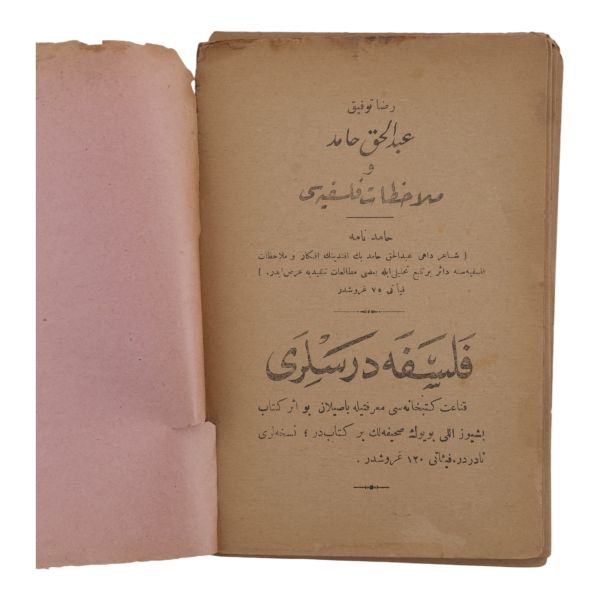 رضا توفيق
عبد الحق حامد
و
ملاحظات فلسفيه سى
حامد نامه
[ شاعر داهى عبد الحق حامد بك افندينك افكار و ملاحظات
فلسفيه سنه دائر بر تتبع تحليلى ايله بعضى مطالعات تنقيديه عرض ايدر. ]
فيأتى ٧٥ غروشدر
فَلْسَفَه دَرسْلِرى
قناعت كتبخانه سى معرفتيله باصيلان بو اثر كتاب
بشيوز اللى بويوك صحيفه لك بر كتاب در ؛ نسخه لرى
نادر در. فيئاتى ١٢٠ غروشدر .